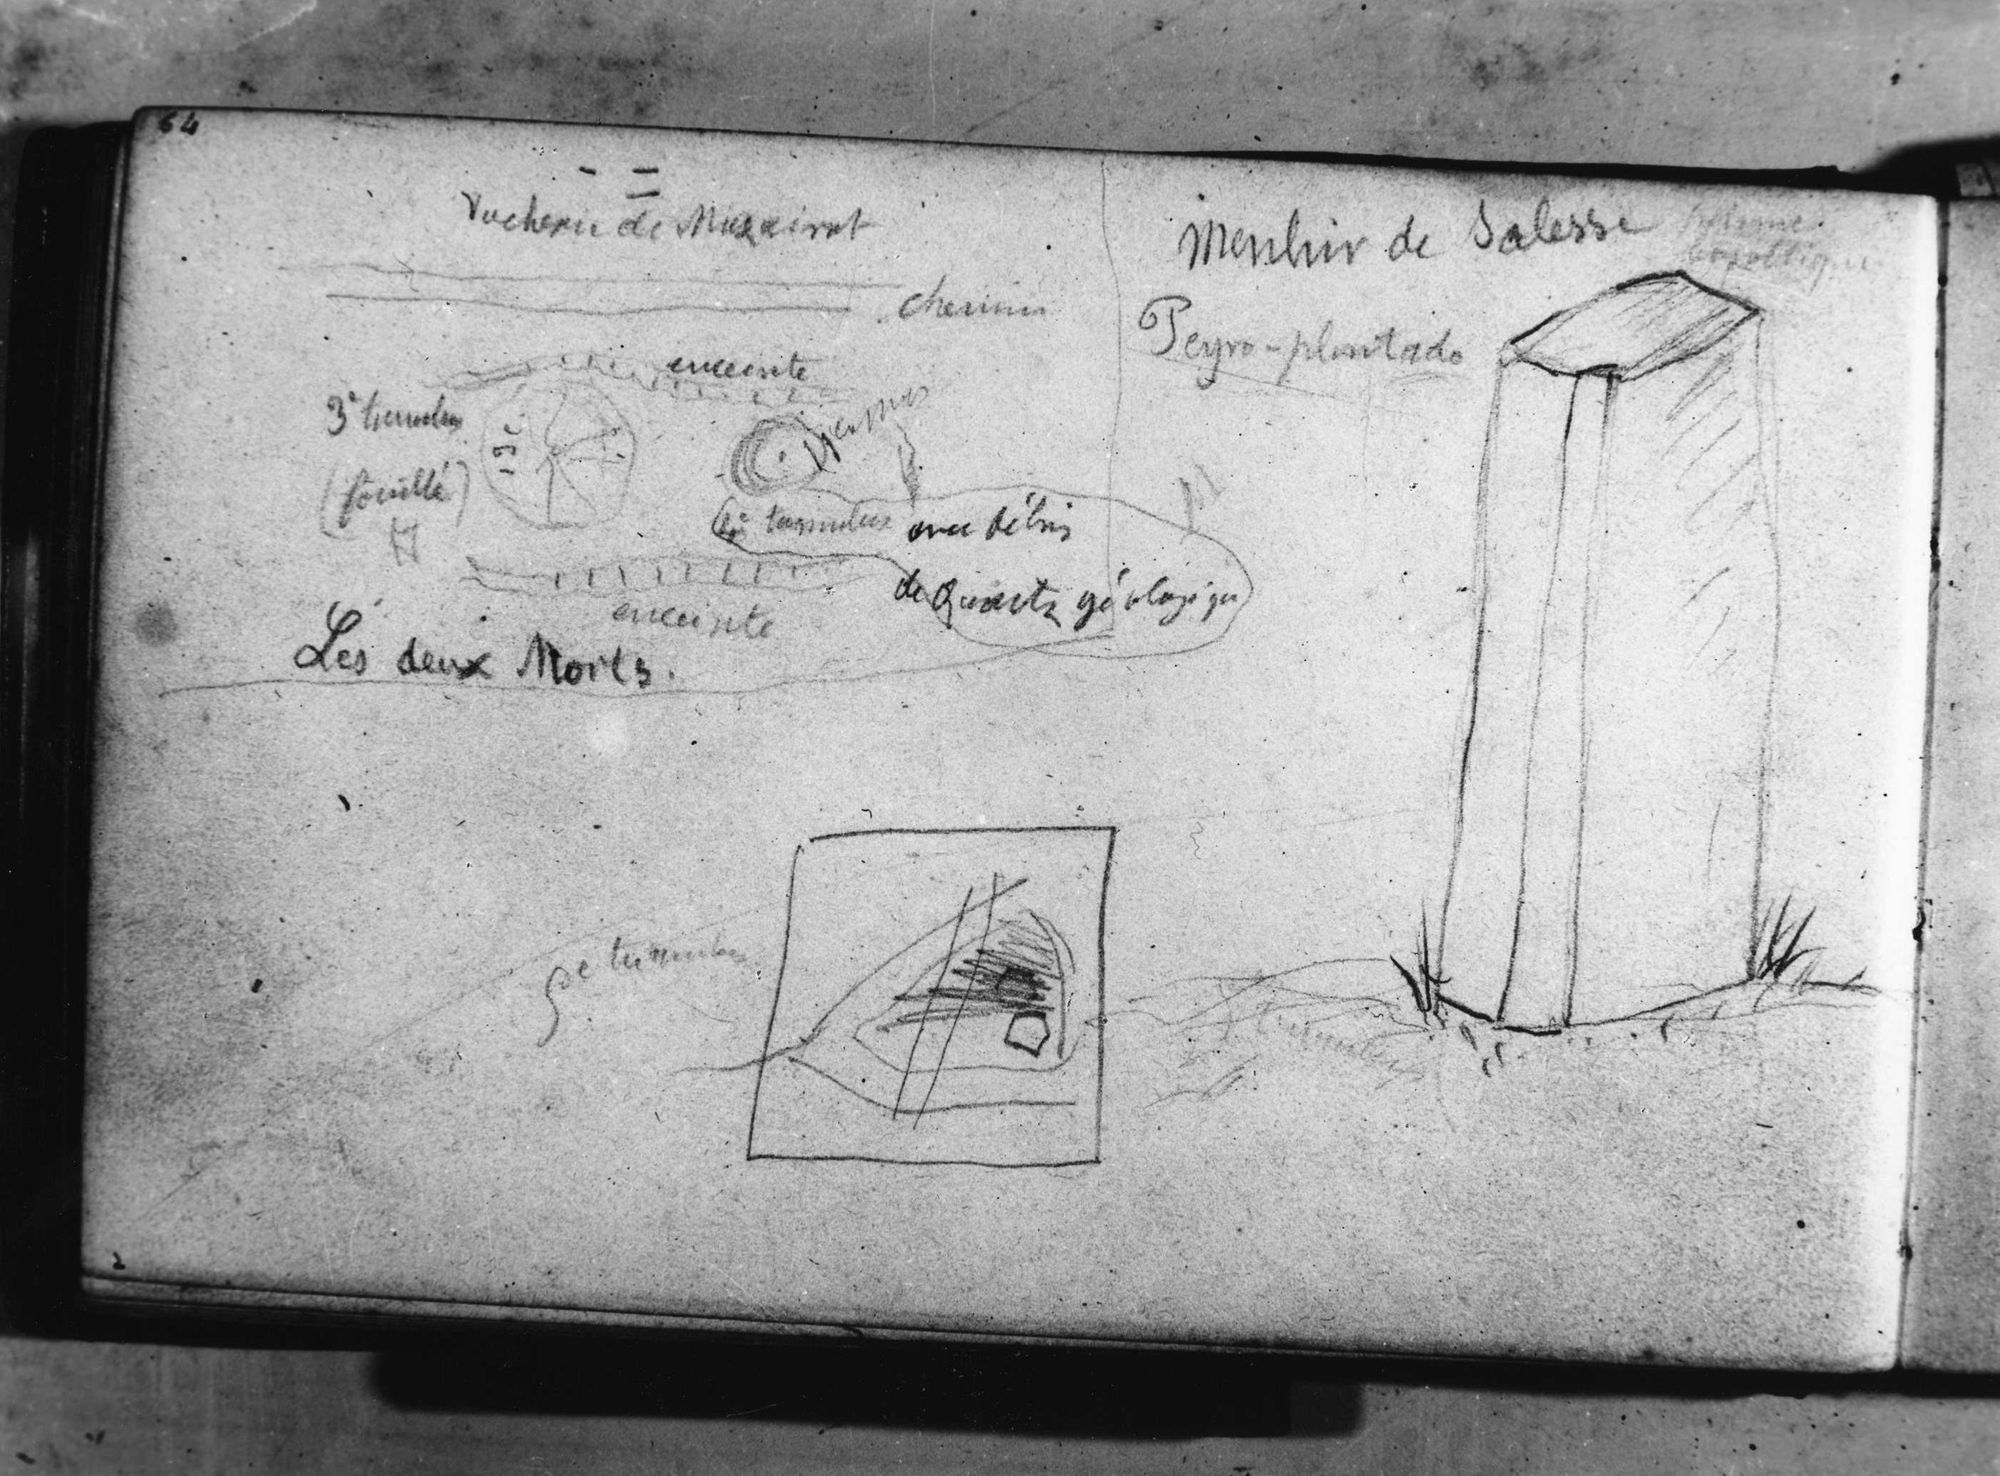 64
Vacherie de Mazairat
chemin
enceinte
3e tumulus
(fouillé)
4e tumulus avec débris
de Quartz géologique
enceinte
Les deux Morts.
5e tumulus
2
Menhir de Salesse
Peyro-plantado
tumulus